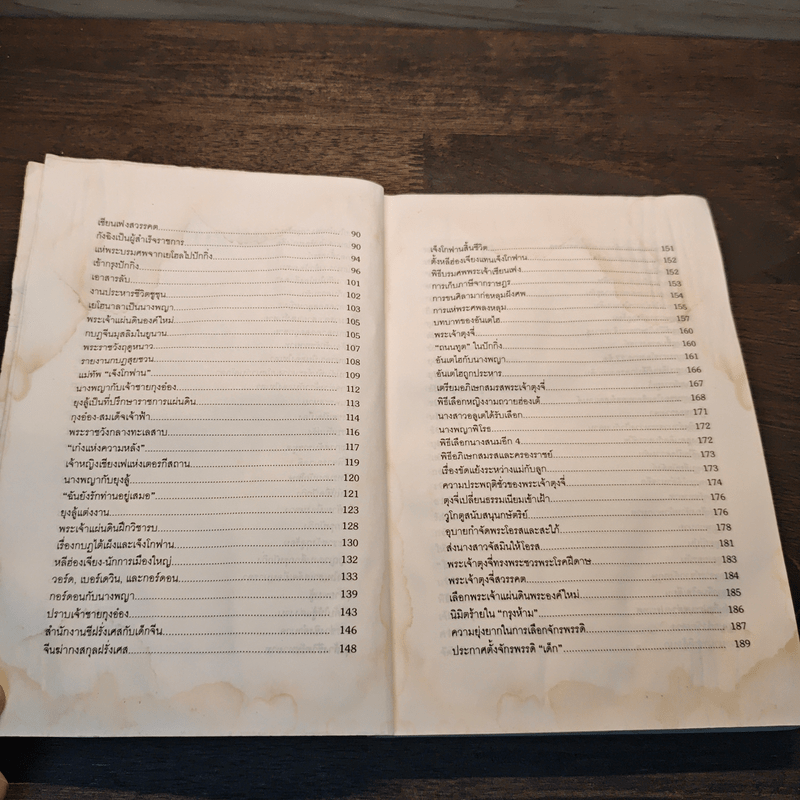 เซียนเฟงสวรรคต 90
กังอิงเป็นผู้สำเร็จราชการ 90
แห่พระบรมศพจากเยโฮลไปปักกิ่ง 94
เข้ากรุงปักกิ่ง 96
เอาสารลับ 101
งานประหารชีวิตซูชุน 102
เยโฮนาลาเป็นนางพญา 103
พระเจ้าแผ่นดินองค์ใหม่ 105
กบฏจีนมุสลิมในยูนาน 105
พระราชวังฤดูหนาว 107
รายงานกบฏสุยชวน 108
แม่ทัพ "เจ็งโกฟาน" 109
นางพญากับเจ้าชายกุงอ๋อง 112
ยุงลู้เป็นที่ปรึกษาราชการแผ่นดิน 113
กุงอ๋อง-สมเด็จเจ้าฟ้า 114
พระราชวังกลางทะเลสาบ 116
"เก๋งแห่งความหลัง" 117
เจ้าหญิงเซียงเฟแห่งเตอรกีสถาน 119
นางพญากับยุงลู้ 120
"ฉันยังรักท่านอยู่เสมอ" 121
ยุงลู้แต่งงาน 123
พระเจ้าแผ่นดินฝึกวิชารบ 128
เรื่องกบฏไต้เผ็งและเจ็งโกฟาน 130
หลีฮ่องเจียง-นักการเมืองใหญ่ 132
วอร์ด, เบอร์เควิน, และกอร์ดอน 133
กอร์ดอนกับนางพญา 139
ปราบเจ้าชายกุงอ๋อง 143
สำนักงานชีฝรั่งเศสกับเด็กจีน 146
จีนฆ่ากงสกุลฝรั่งเศส 148
เจ็งโกฟานสิ้นชีวิต 151
ตั้งหลีฮ่องเจียงแทนเจ็งโกฟาน 152
พิธีบรมศพพระเจ้าเซียนเฟง 152
การเก็บภาษีจากราษฎร 153
การขนศิลามาก่อหลุมฝังศพ 154
การแห่พระศพลงหลุม 155
บทบาทของอันเตไฮ 157
พระเจ้าตุงจี่ 160
"ถนนทูต" ในปักกิ่ง 160
อันเตไฮกับนางพญา 161
อันเตไฮถูกประหาร 166
เตรียมอภิเษกสมรสพระเจ้าตุงจี่ 167
พิธีเลือกหญิงงามถวายฮ่องเต้ 168
นางสาวอลูเตได้รับเลือก 171
นางพญาพิโรธ 172
พิธีเลือกนางสนมอีก 4 172
พิธีอภิเษกสมรสและครองราชย์ 173
เรื่องขัดแย้งระหว่างแม่กับลูก 173
ความประพฤติชั่วของพระเจ้าตุงจี่ 174
ตุงจี่เปลี่ยนธรรมเนียมเข้าเฝ้า 176
วูโกตูสนับสนุนกษัตริย์ 176
อุบายกำจัดพระโอรสและสะใภ้ 178
ส่งนางสาวจัสมินให้โอรส 181
พระเจ้าตุงจี่ทรงพระชวรพระโรคฝีดาษ 183
พระเจ้าตุงจี่สวรรคต 184
เลือกพระเจ้าแผ่นดินพระองค์ใหม่ 185
นิมิตร้ายใน "กรุงห้าม" 186
ความยุ่งยากในการเลือกจักรพรรดิ 187
ประกาศตั้งจักรพรรดิ "เด็ก" 189